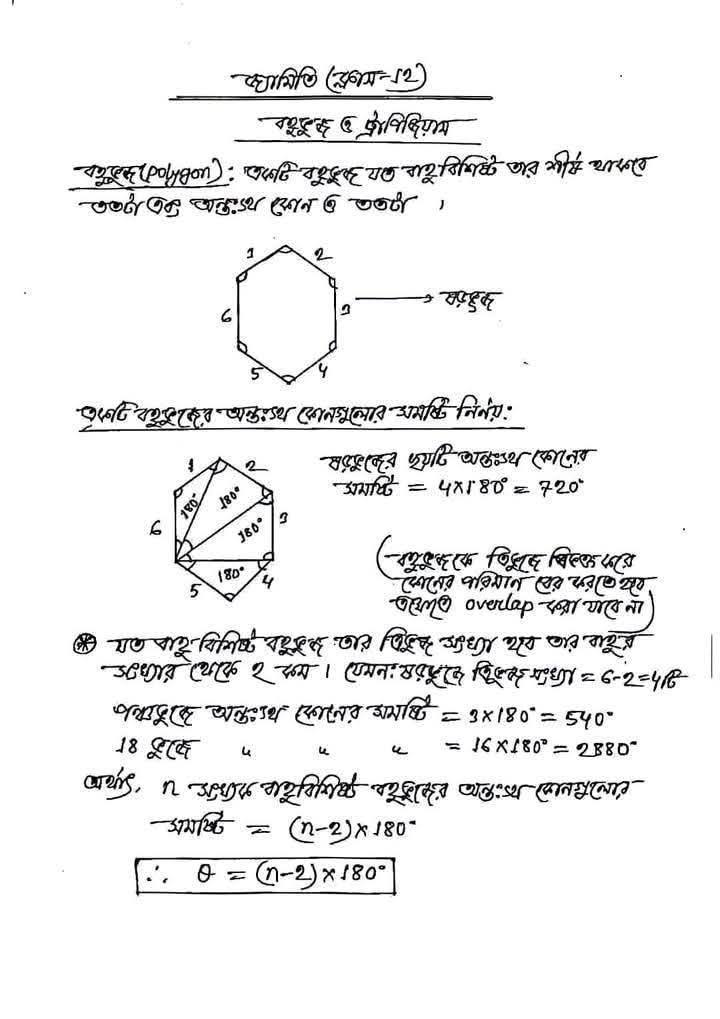 জ্যামিতি (ক্লাস-১২)
বহুভুজ ও ট্রাপিজিয়াম
বহুভুজ (polygon): একটি বহুভুজ যত বাহু বিশিষ্ট তার শীর্ষ থাকবে
ততটা এবং অন্তঃস্থ কোন ও ততটা ।
1 2
6 3 → ষরভুজ
5 4
একটি বহুভুজের অন্তঃস্থ কোনগুলোর সমষ্টি নির্নয়:
ষরভুজের ছয়টি অন্তঃস্থ কোনের
সমষ্টি = 4×180° = 720°
1 2
180° 180°
6 180° 3
180°
5 4
(বহুভুজকে ত্রিভুজে বিভক্ত করে
কোনের পরিমান বের করতে হবে
overlap করা যাবে না)
⊛ যত বাহু বিশিষ্ট বহুভুজ তার ত্রিভুজ সংখ্যা হবে তার বাহুর
সংখ্যার থেকে ২ কম । যেমন: ষরভুজে ত্রিভুজ সংখ্যা = 6-2=4টি
পঞ্চভুজে অন্তঃস্থ কোনের সমষ্টি = 3×180° = 540°
18 ভুজে " " " = 16×180° = 2880°
অর্থাৎ, n সংখ্যক বাহুবিশিষ্ট বহুভুজের অন্তঃস্থ কোনগুলোর
সমষ্টি = (n-2)×180°
∴ θ = (n-2)×180°